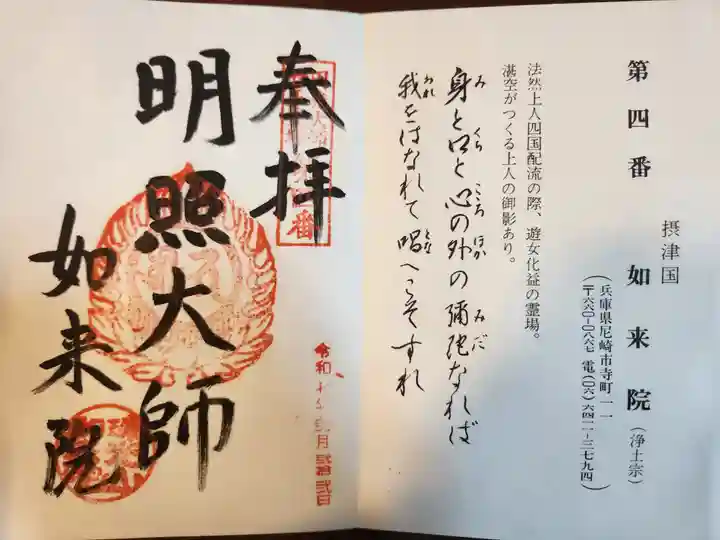 摂津国
第四番 如来院(浄土宗)
(兵庫県尼崎市寺町一一
〒六六〇-〇八六七 電(〇六)六四一一-三七九四)
法然上人四国配流の際、遊女化益の霊場。
湛空がつくる上人の御影あり。
身と口と心の外の彌陀なれば
み くち こころ ほか みだ
我をはなれて唱へこそすれ
われ とな
奉拝
明照大師
如来院
令和
月
日